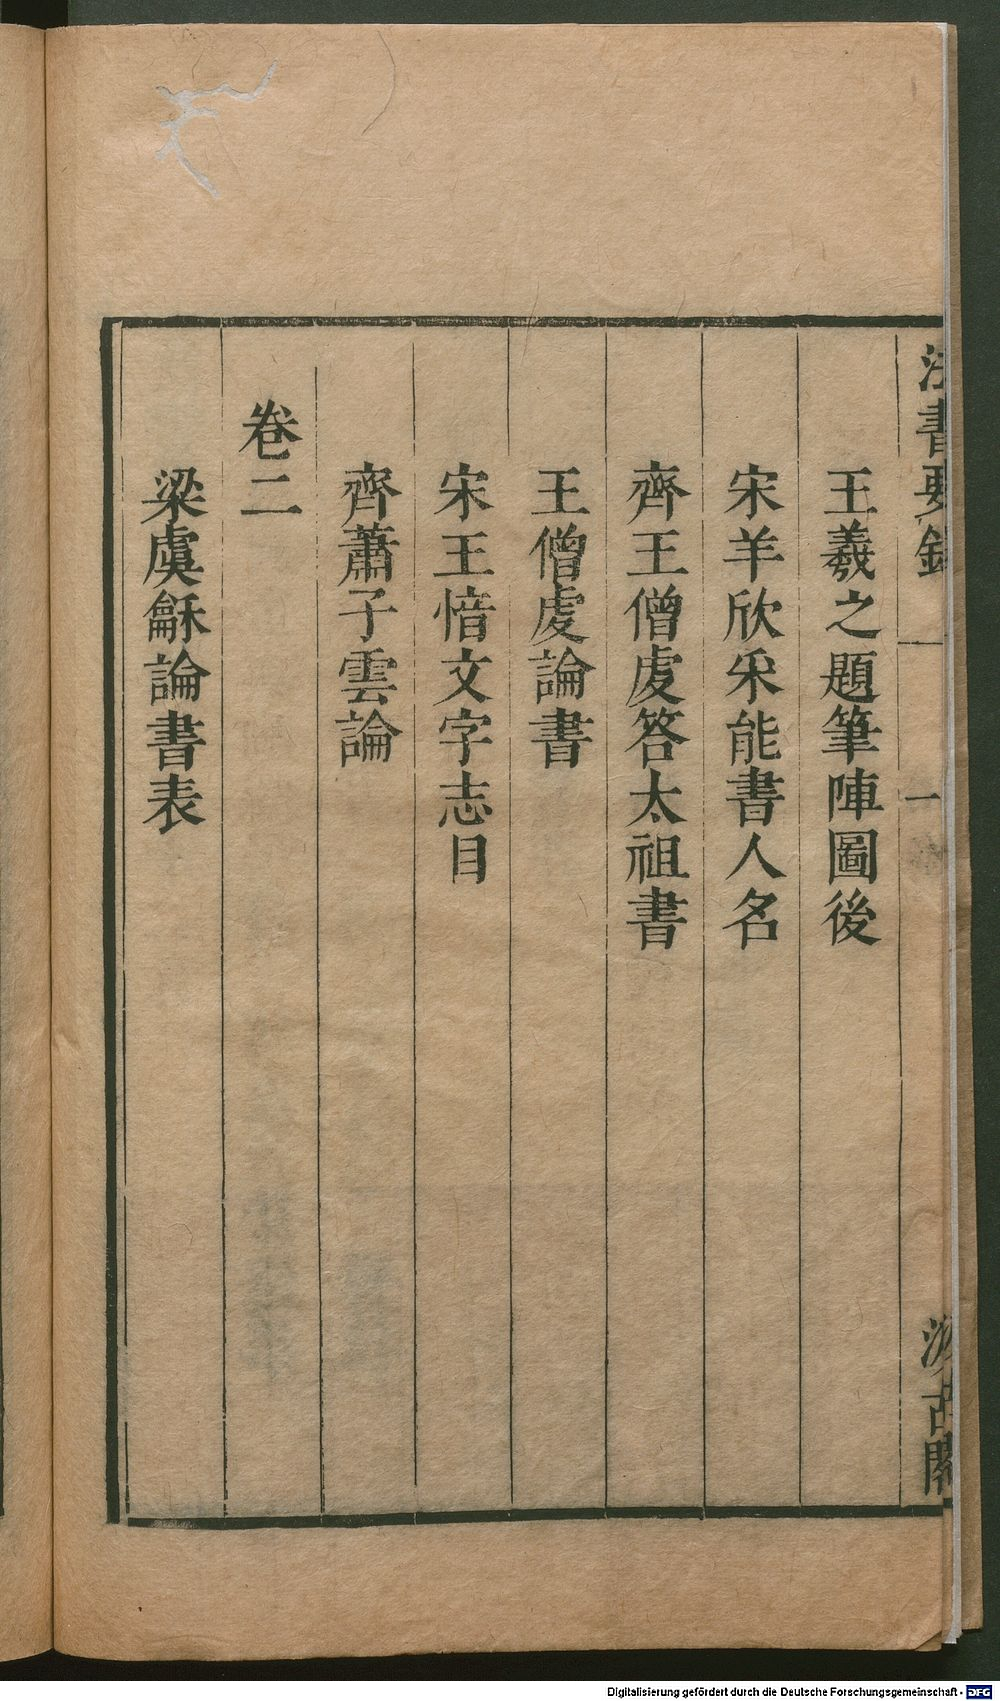 法書要錄 一 一 汲古閣
王羲之題筆陣圖後
宋羊欣采能書人名
齊王僧虔答太祖書
王僧虔論書
宋王愔文字志目
齊蕭子雲論
卷二
梁虞龢論書表
Digitalisierung gefördert durch die Deutsche Forschungsgemeinschaft - DFG